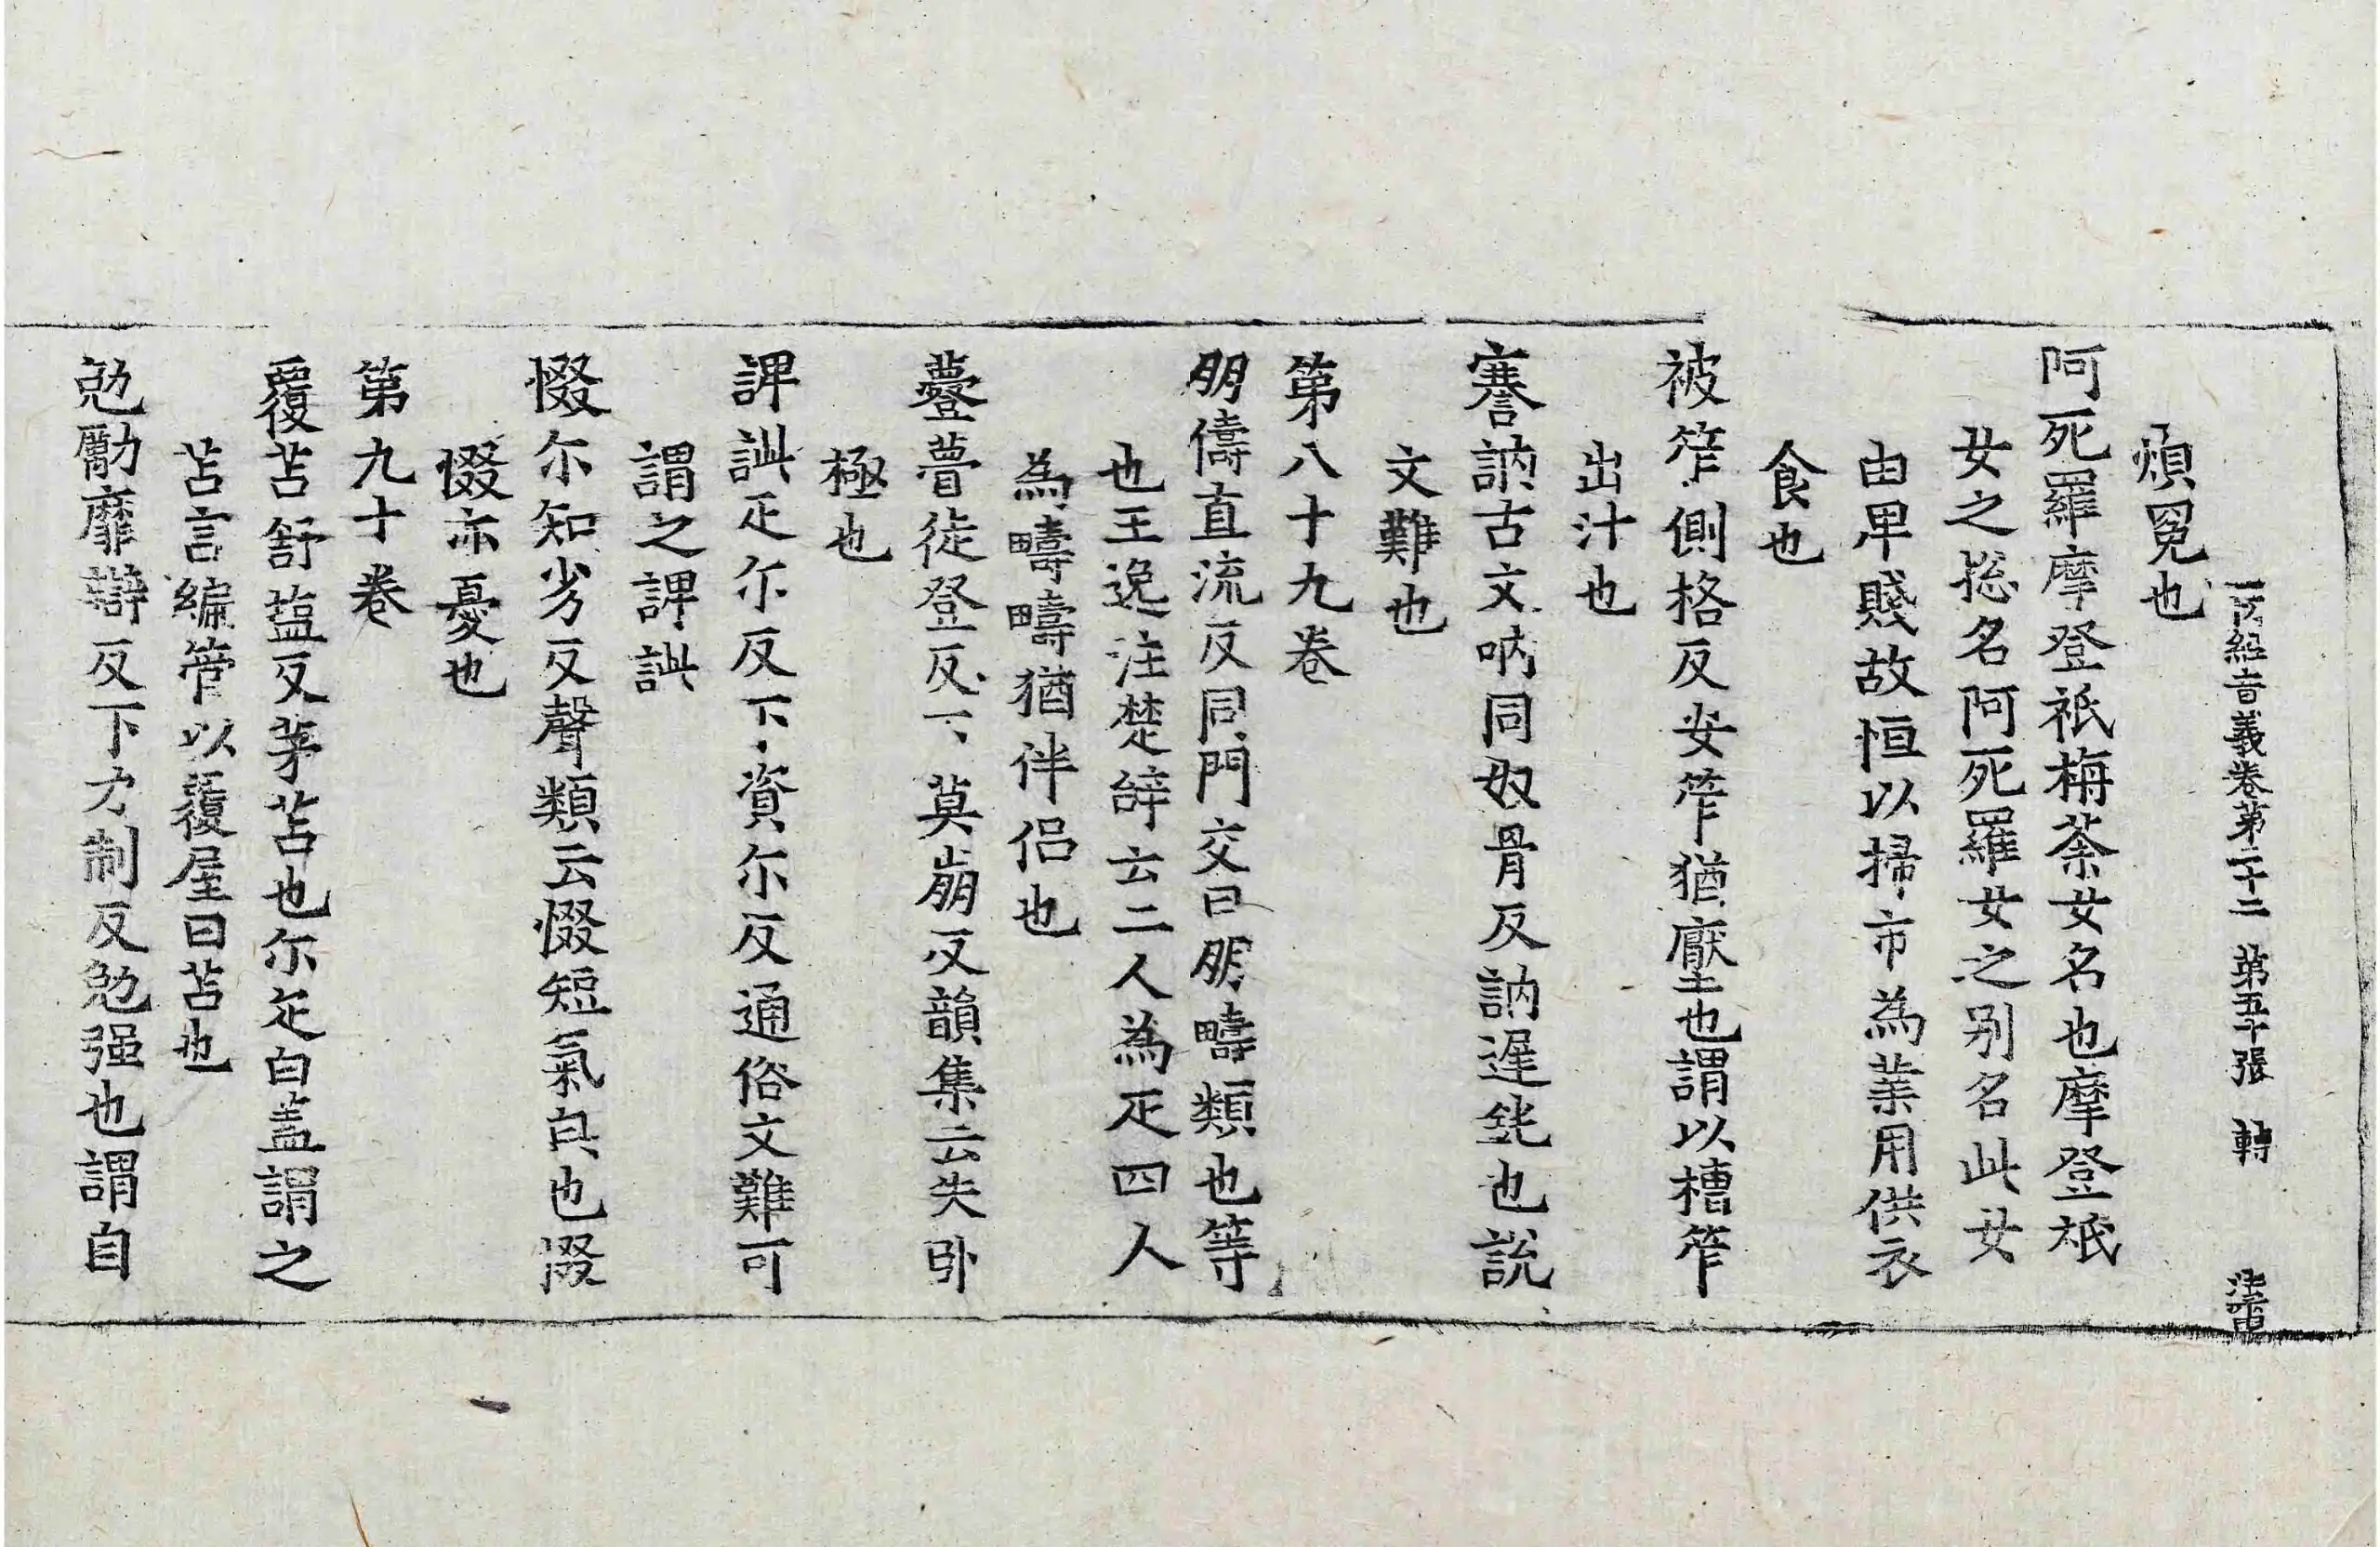 一切經音義卷第二十二 第五十張 轉
煩冤也
阿死羅摩登祇栴荼女名也摩登祇
女之揔名阿死羅女之别名此女
由卑賤故恒以掃市為業用供衣
食也
被笮側格反安笮猶壓也謂以槽笮
出汁也
謇訥古文吶同奴骨反訥遲鈍也說
文難也
第八十九卷
朋儔直流反同門交曰朋疇類也等
也王逸注楚辝云二人為疋四人
為疇疇猶伴侣也
䠬瞢徒登反下莫崩反韻集云失卧
極也
諀訿疋尔反下資尔反通俗文難可
謂之諀訿
惙尔知劣反聲類云惙短氣皃也惙
惙亦憂也
第九十卷
覆苫舒葅反茅苫也尔疋白盖謂之
苫言編菅以覆屋曰苫也
勉勵靡辯反下力制反勉强也謂自